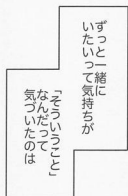 ずっと一緒に
いたいって気持ちが
「そういうこと」
なんだって
気づいたのは